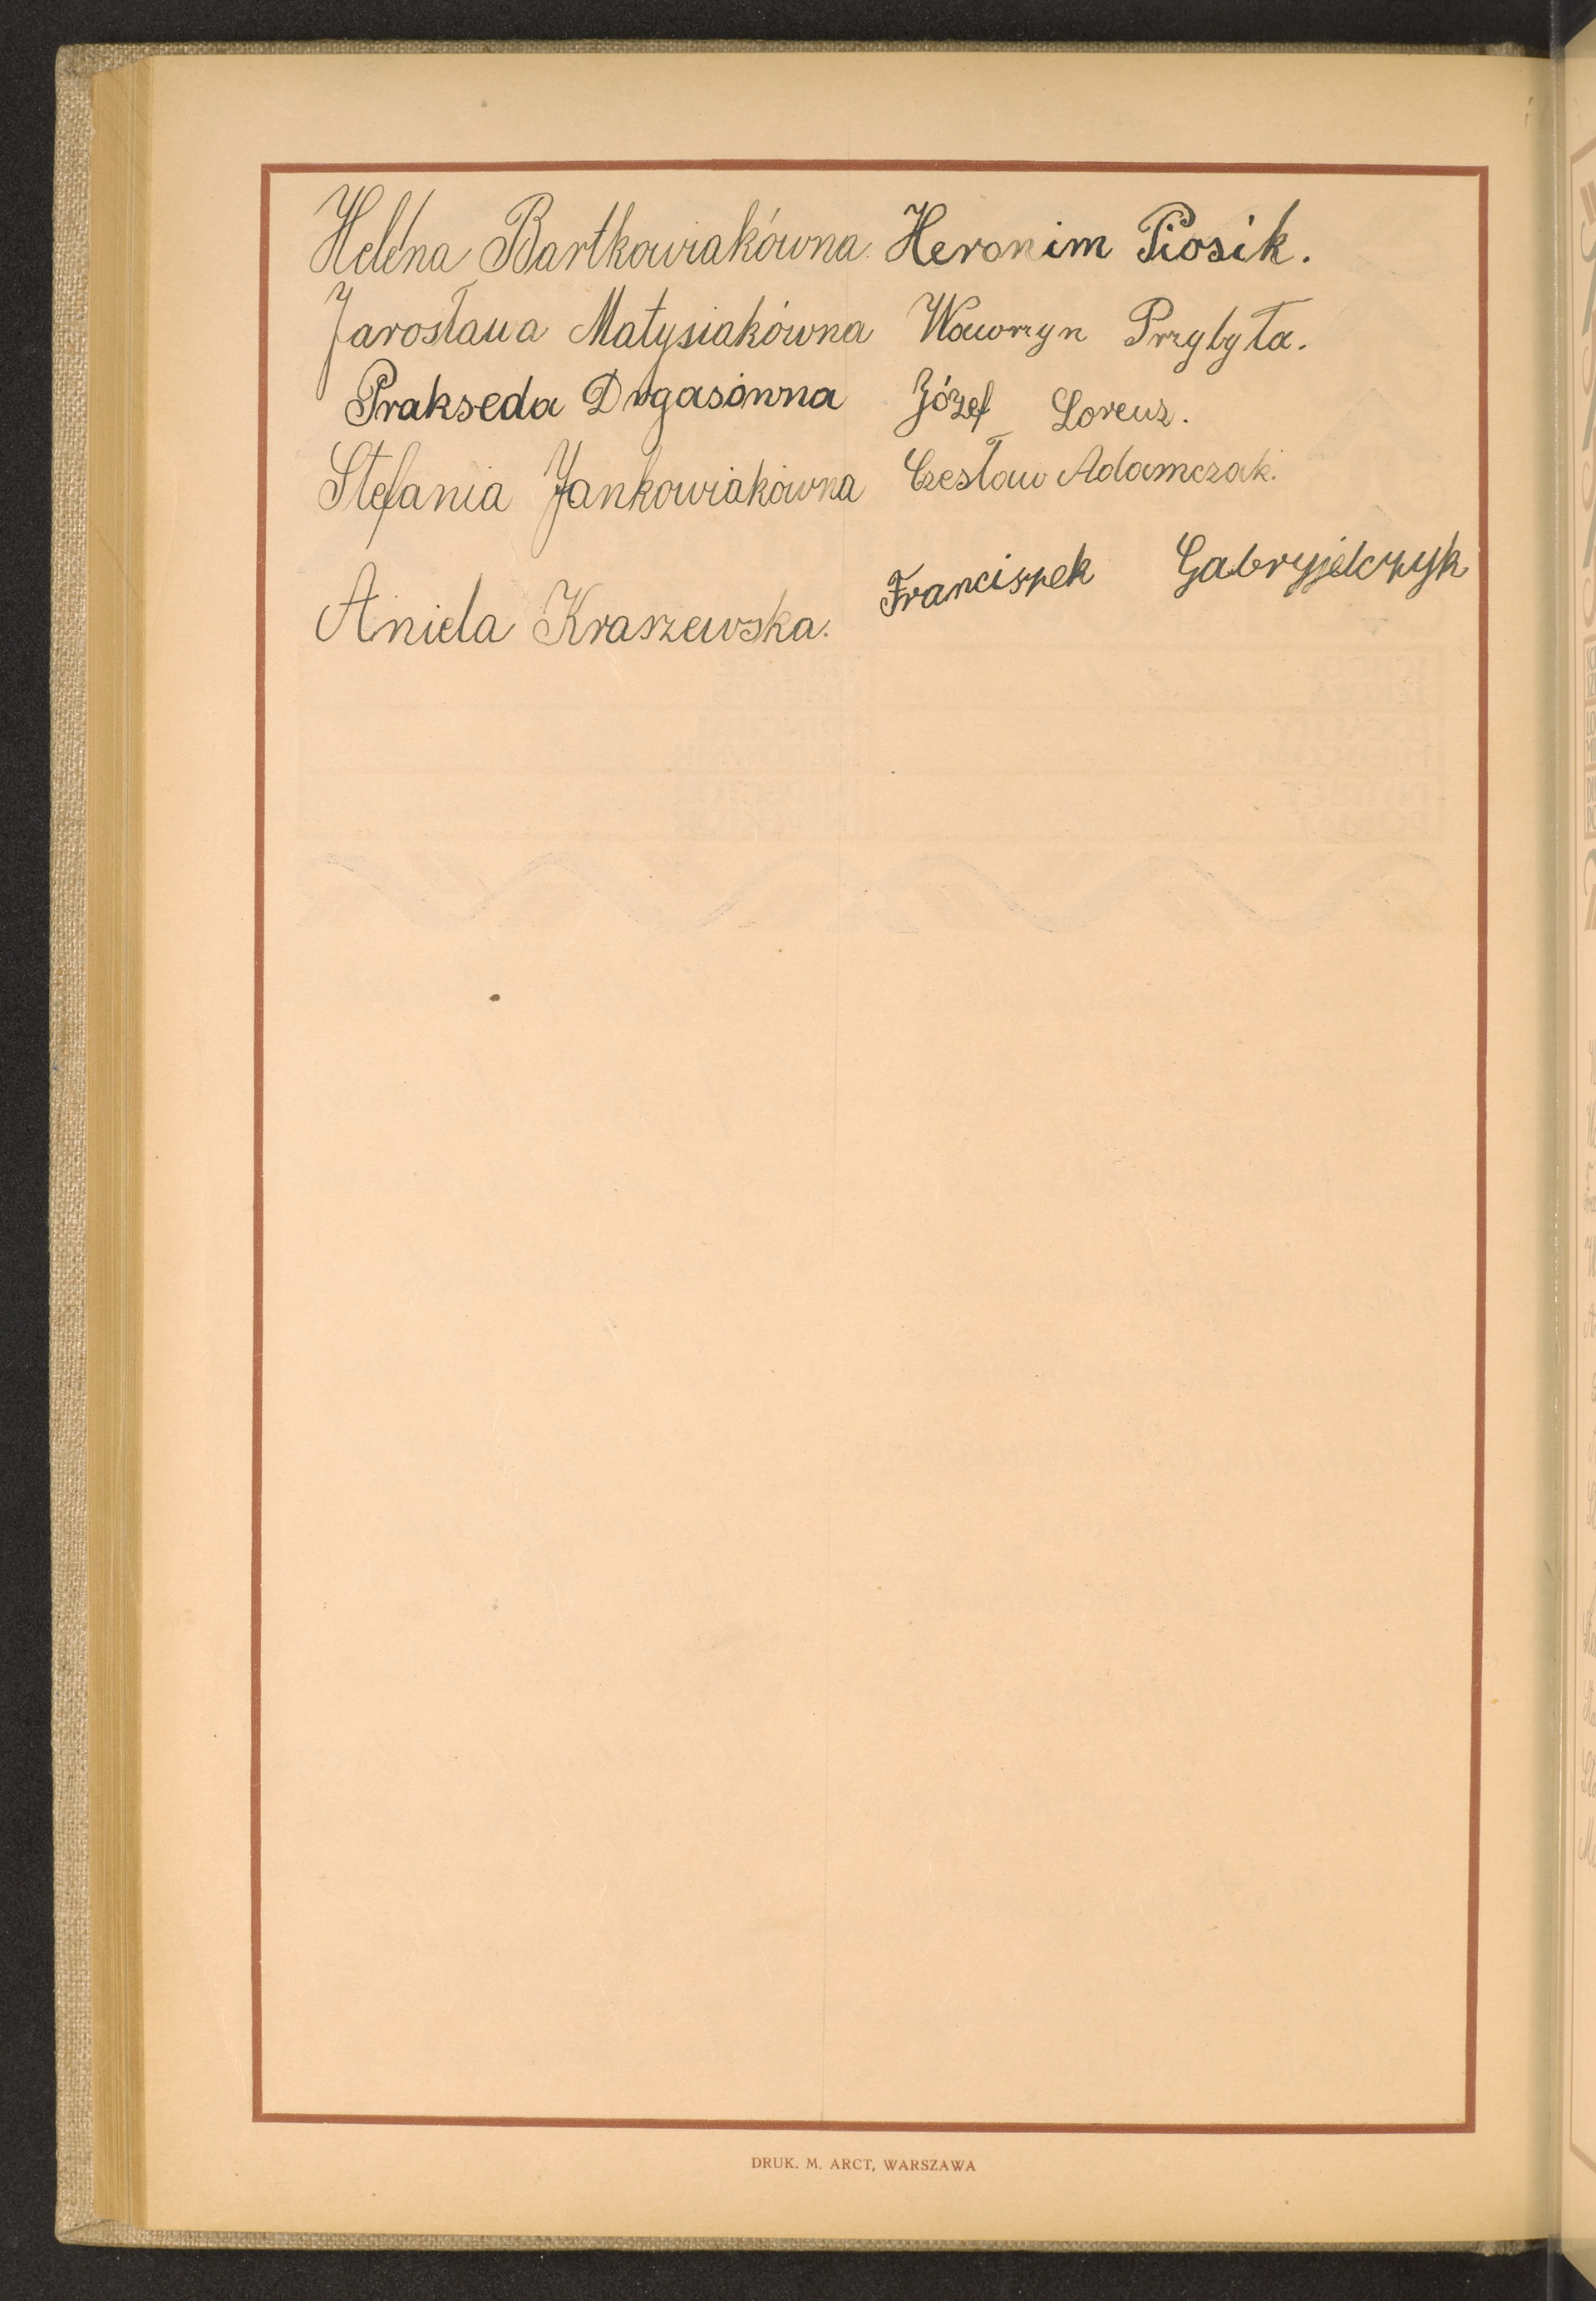 Helena Bartkowiakówna. Heronim Piosik.
Jarosława Matysiakówna Wawrzyn Przybyła.
Prakseda Dugasówna Józef Lorenz.
Stefania Jankowiakówna Czesław Adamczak.
Aniela Kraszewska. Franciszek Gabryjelczyk
DRUK. M. ARCT, WARSZAWA